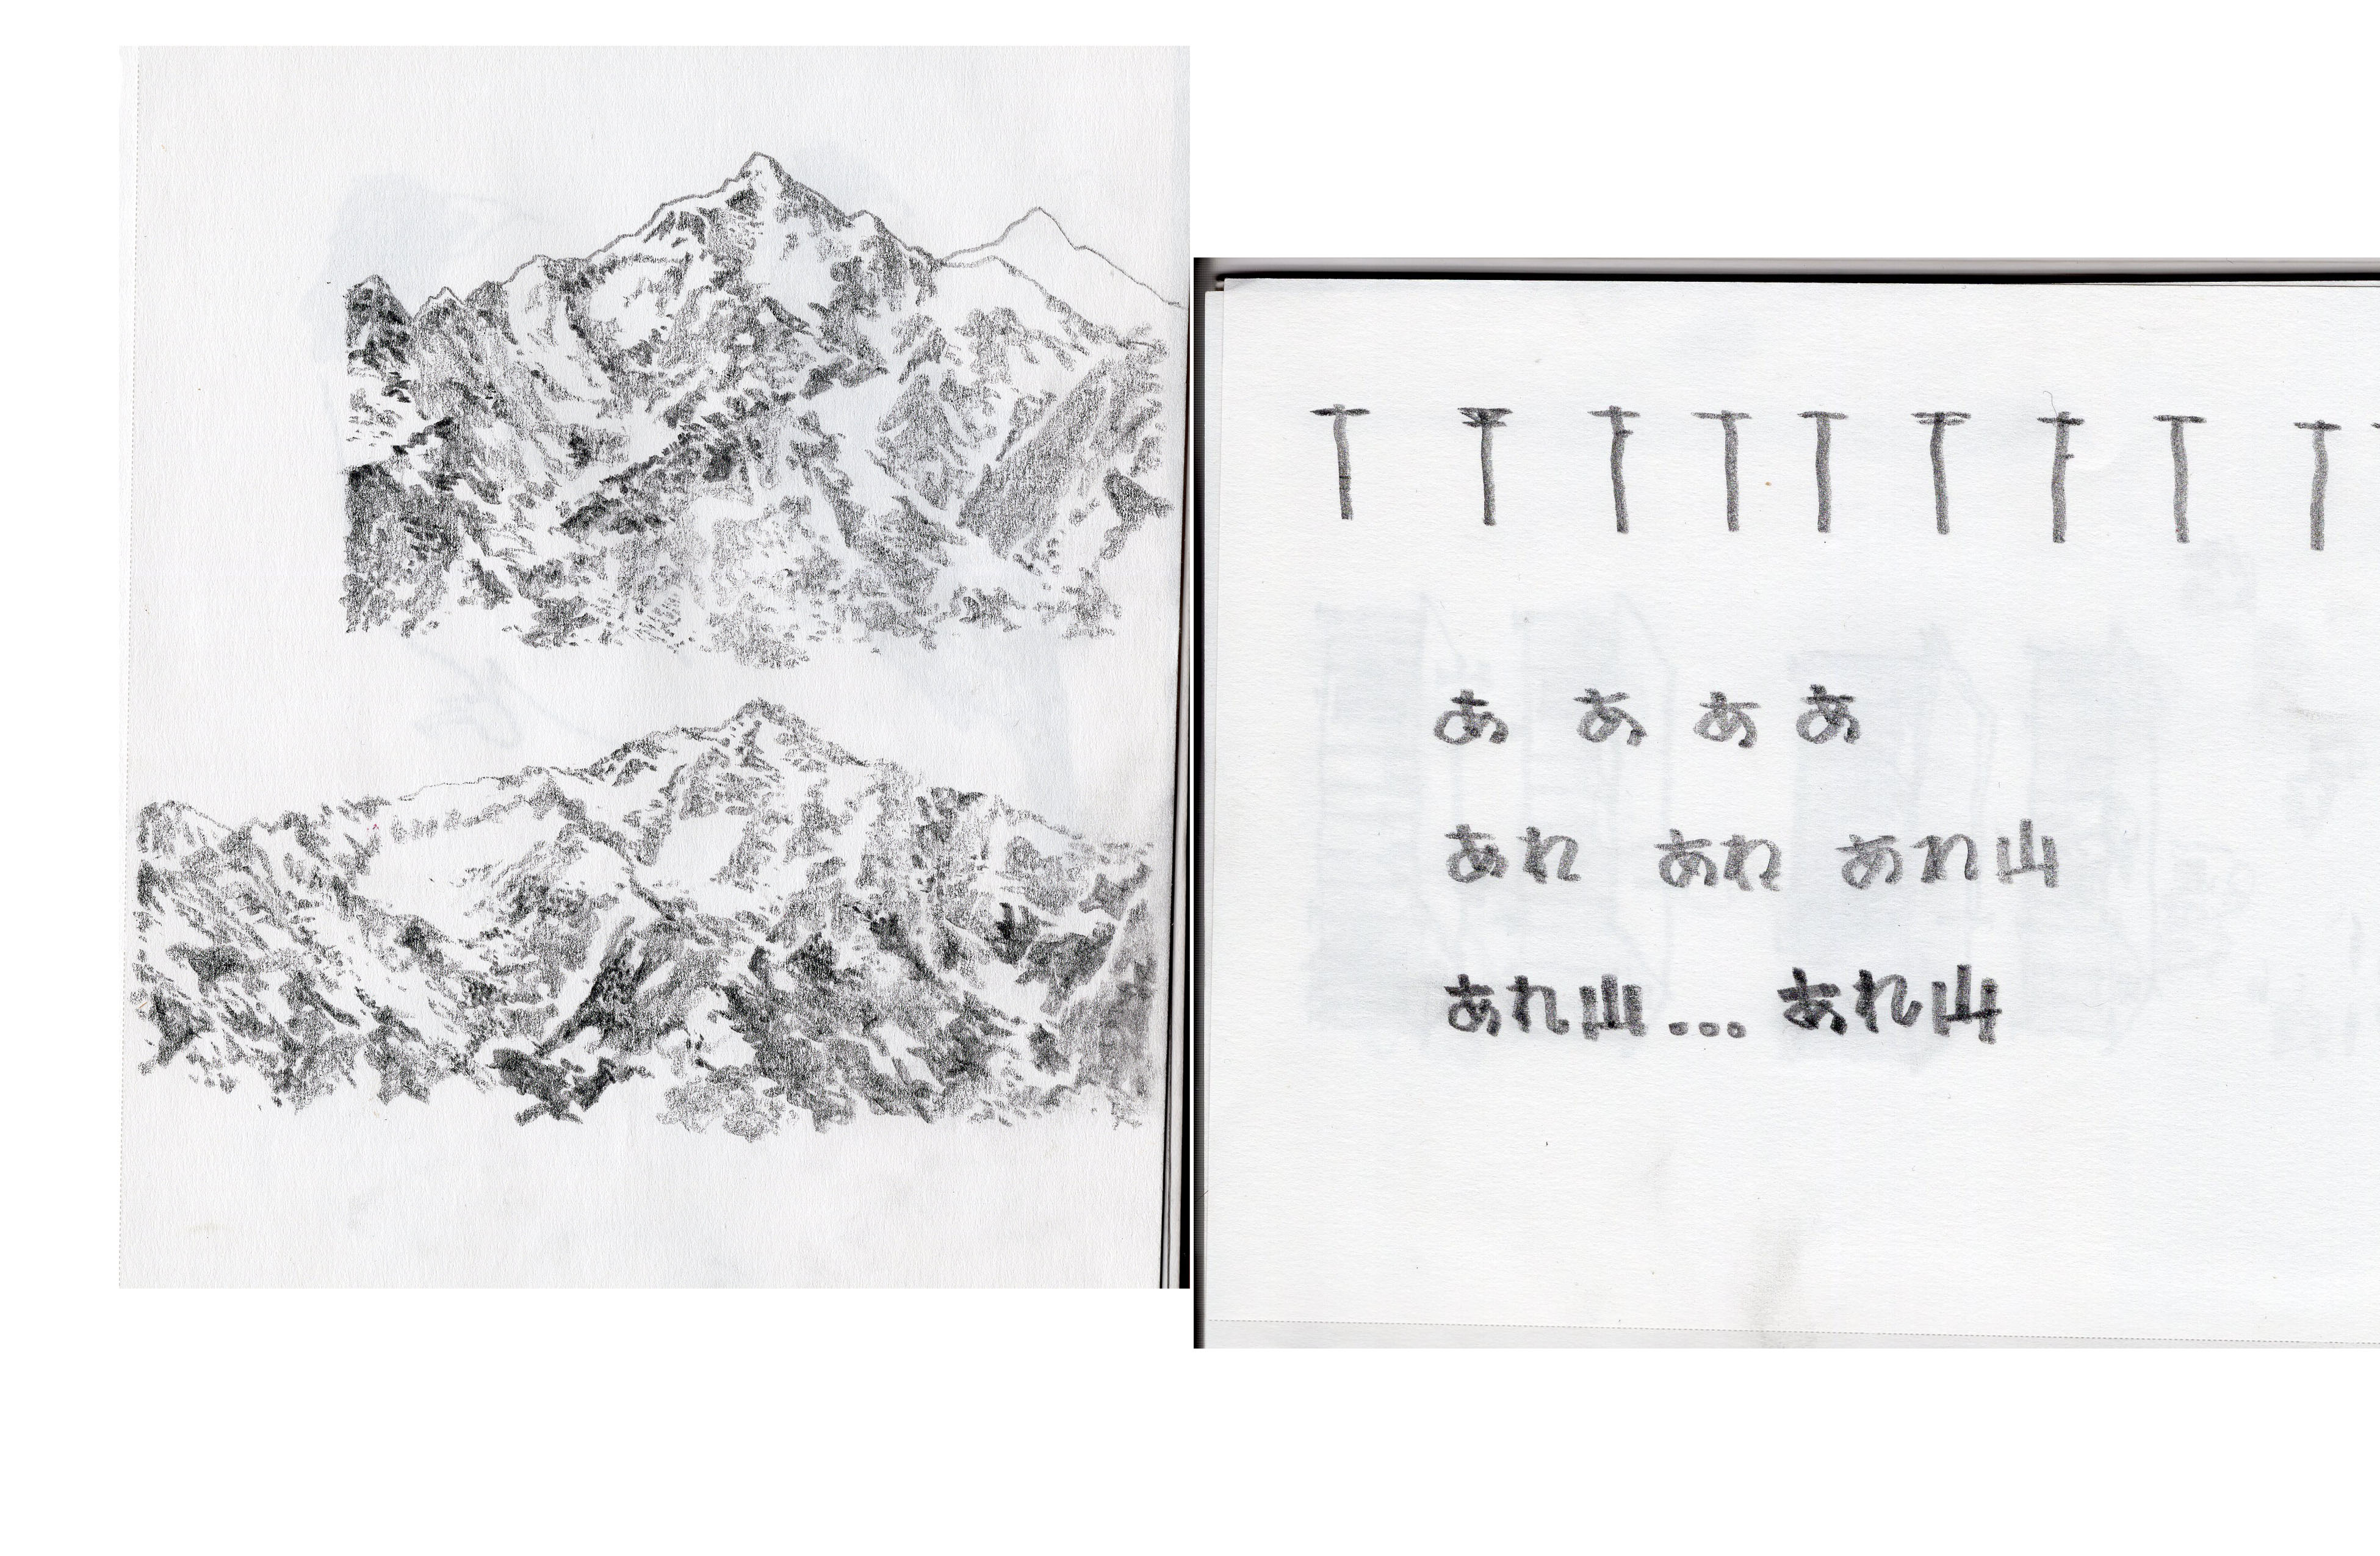 あ あ あ あ
あれ あれ あれ山
あれ山... あれ山